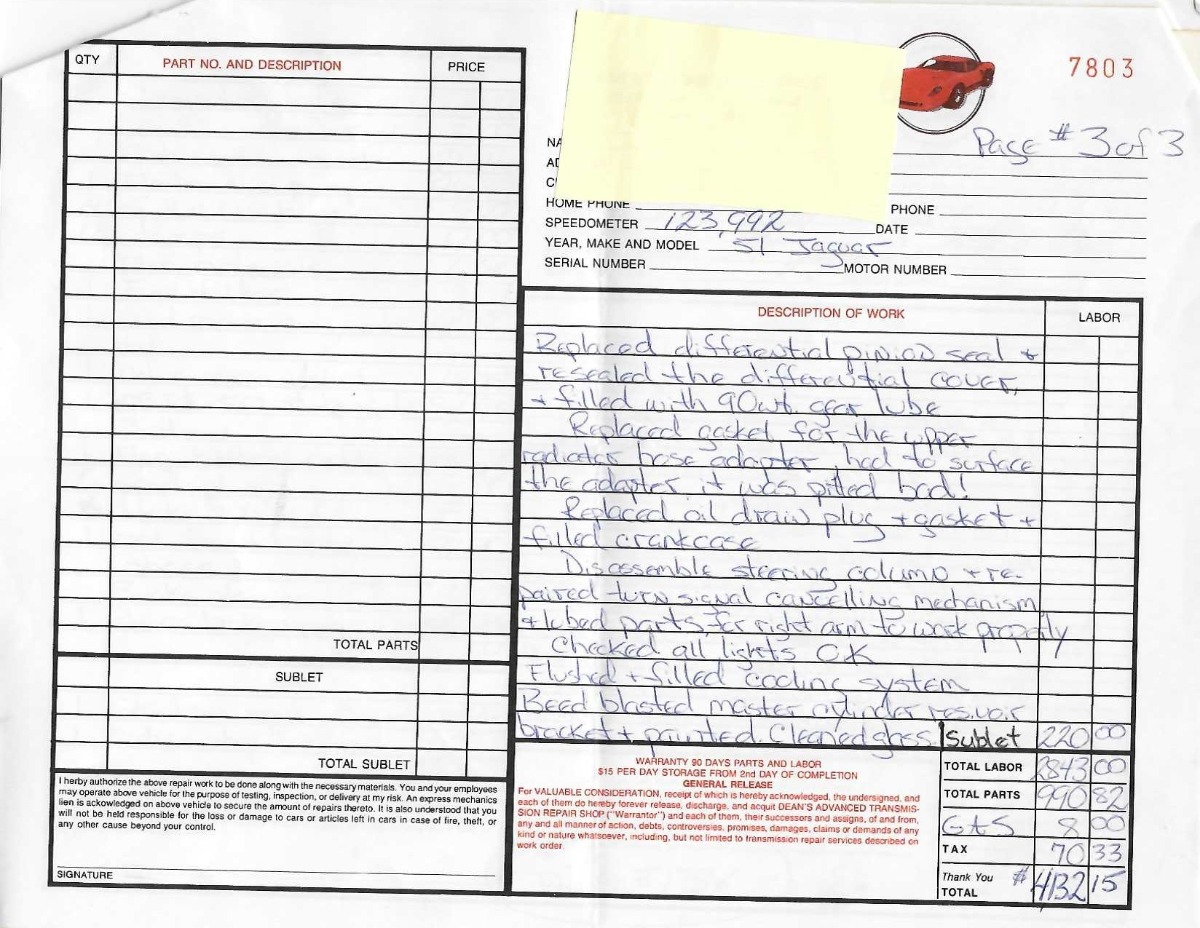 QTY PART NO. AND DESCRIPTION PRICE
TOTAL PARTS
SUBLET
TOTAL SUBLET
I herby authorize the above repair work to be done along with the necessary materials. You and your employees
may operate above vehicle for the purpose of testing, inspection, or delivery at my risk. An express mechanics
lien is acknowledged on above vehicle to secure the amount of repairs thereto. It is also understood that you
will not be held responsible for the loss or damage to cars or articles left in cars in case of fire, theft, or
any other cause beyond your control.
SIGNATURE
7803
Page # 3 of 3
NA
AD
C
HOME PHONE PHONE
SPEEDOMETER 123,992 DATE
YEAR, MAKE AND MODEL '51 Jaguar
SERIAL NUMBER MOTOR NUMBER
DESCRIPTION OF WORK LABOR
Replaced differential pinion seal +
resealed the differential cover,
+ filled with 90wt. gear lube
Replaced gasket for the upper
radiator hose adapter, had to surface
the adapter it was pitted bad!
Replaced oil drain plug + gasket +
filled crankcase
Disassemble steering column + re-
paired turn signal cancelling mechanism
+ lubed parts for right arm to work properly
Checked all lights OK
Flushed + filled cooling system
Beed blasted master cylinder resivoir
bracket + painted. Cleaned glass. Sublet 220 00
WARRANTY 90 DAYS PARTS AND LABOR
$15 PER DAY STORAGE FROM 2nd DAY OF COMPLETION
GENERAL RELEASE
For VALUABLE CONSIDERATION, receipt of which is hereby acknowledged, the undersigned, and
each of them do hereby forever release, discharge, and acquit DEAN'S ADVANCED TRANSMIS-
SION REPAIR SHOP ("Warrantor") and each of them, their successors and assigns, of and from,
any and all manner of action, debts, controversies, promises, damages, claims or demands of any
kind or nature whatsoever, including, but not limited to transmission repair services described on
work order.
TOTAL LABOR 2843 00
TOTAL PARTS 990 82
GAS 8 00
TAX 70 33
Thank You
TOTAL # 4132 15